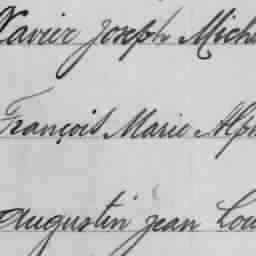 Xavier Joseph Mich
François Marie Alph
Augustin Jean Lou